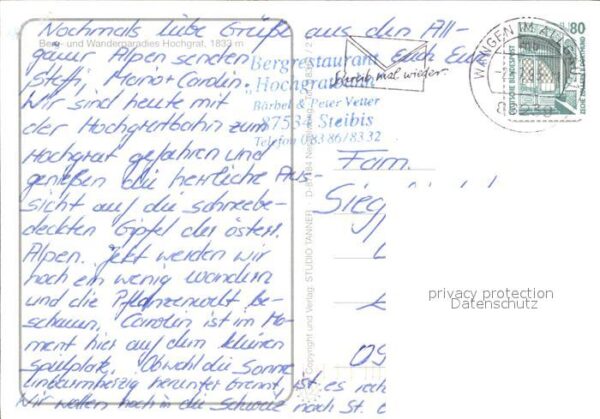 Nochmals liebe Grüße aus den All-
gäuer Alpen senden Euch Eure
Steffi, Mario + Carolin.
Wir sind heute mit
der Hochgratbahn zum
Hochgrat gefahren und
genießen die herrliche Aus-
sicht auf die schneebe-
deckten Gipfel der österr.
Alpen. Jetzt werden wir
noch ein wenig wandern
und die Pflanzenwelt be-
schauen. Carolin ist im Mo-
ment hier auf dem kleinen
Spielplatz. Obwohl die Sonne
unbarmherzig herunter brennt, ist es
Wir wollen noch in die Schweiz nach St.
Berg- und Wanderparadies Hochgrat, 1833 m
Bergrestaurant
Hochgratbahn
Bärbel & Peter Vetter
87534 Steibis
Telefon 08386/8332
Schreib mal wieder
WANGEN IM ALLGÄU
DEUTSCHE BUNDESPOST
80
Copyright und Verlag: STUDIO TANNER
Fam.
Sieg
09
privacy protection
Datenschutz